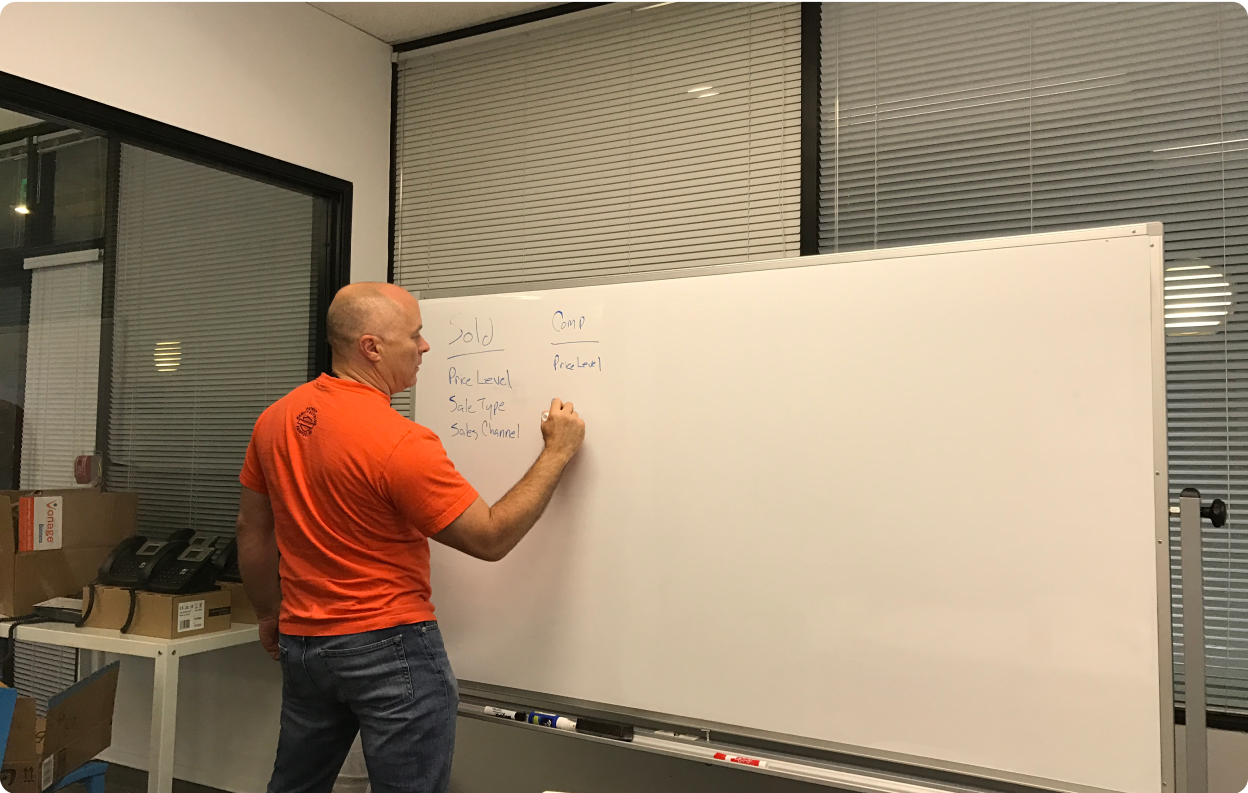 Sold
Price Level
Sale Type
Sales Channel
Comp
Price Level
Vonage
Business